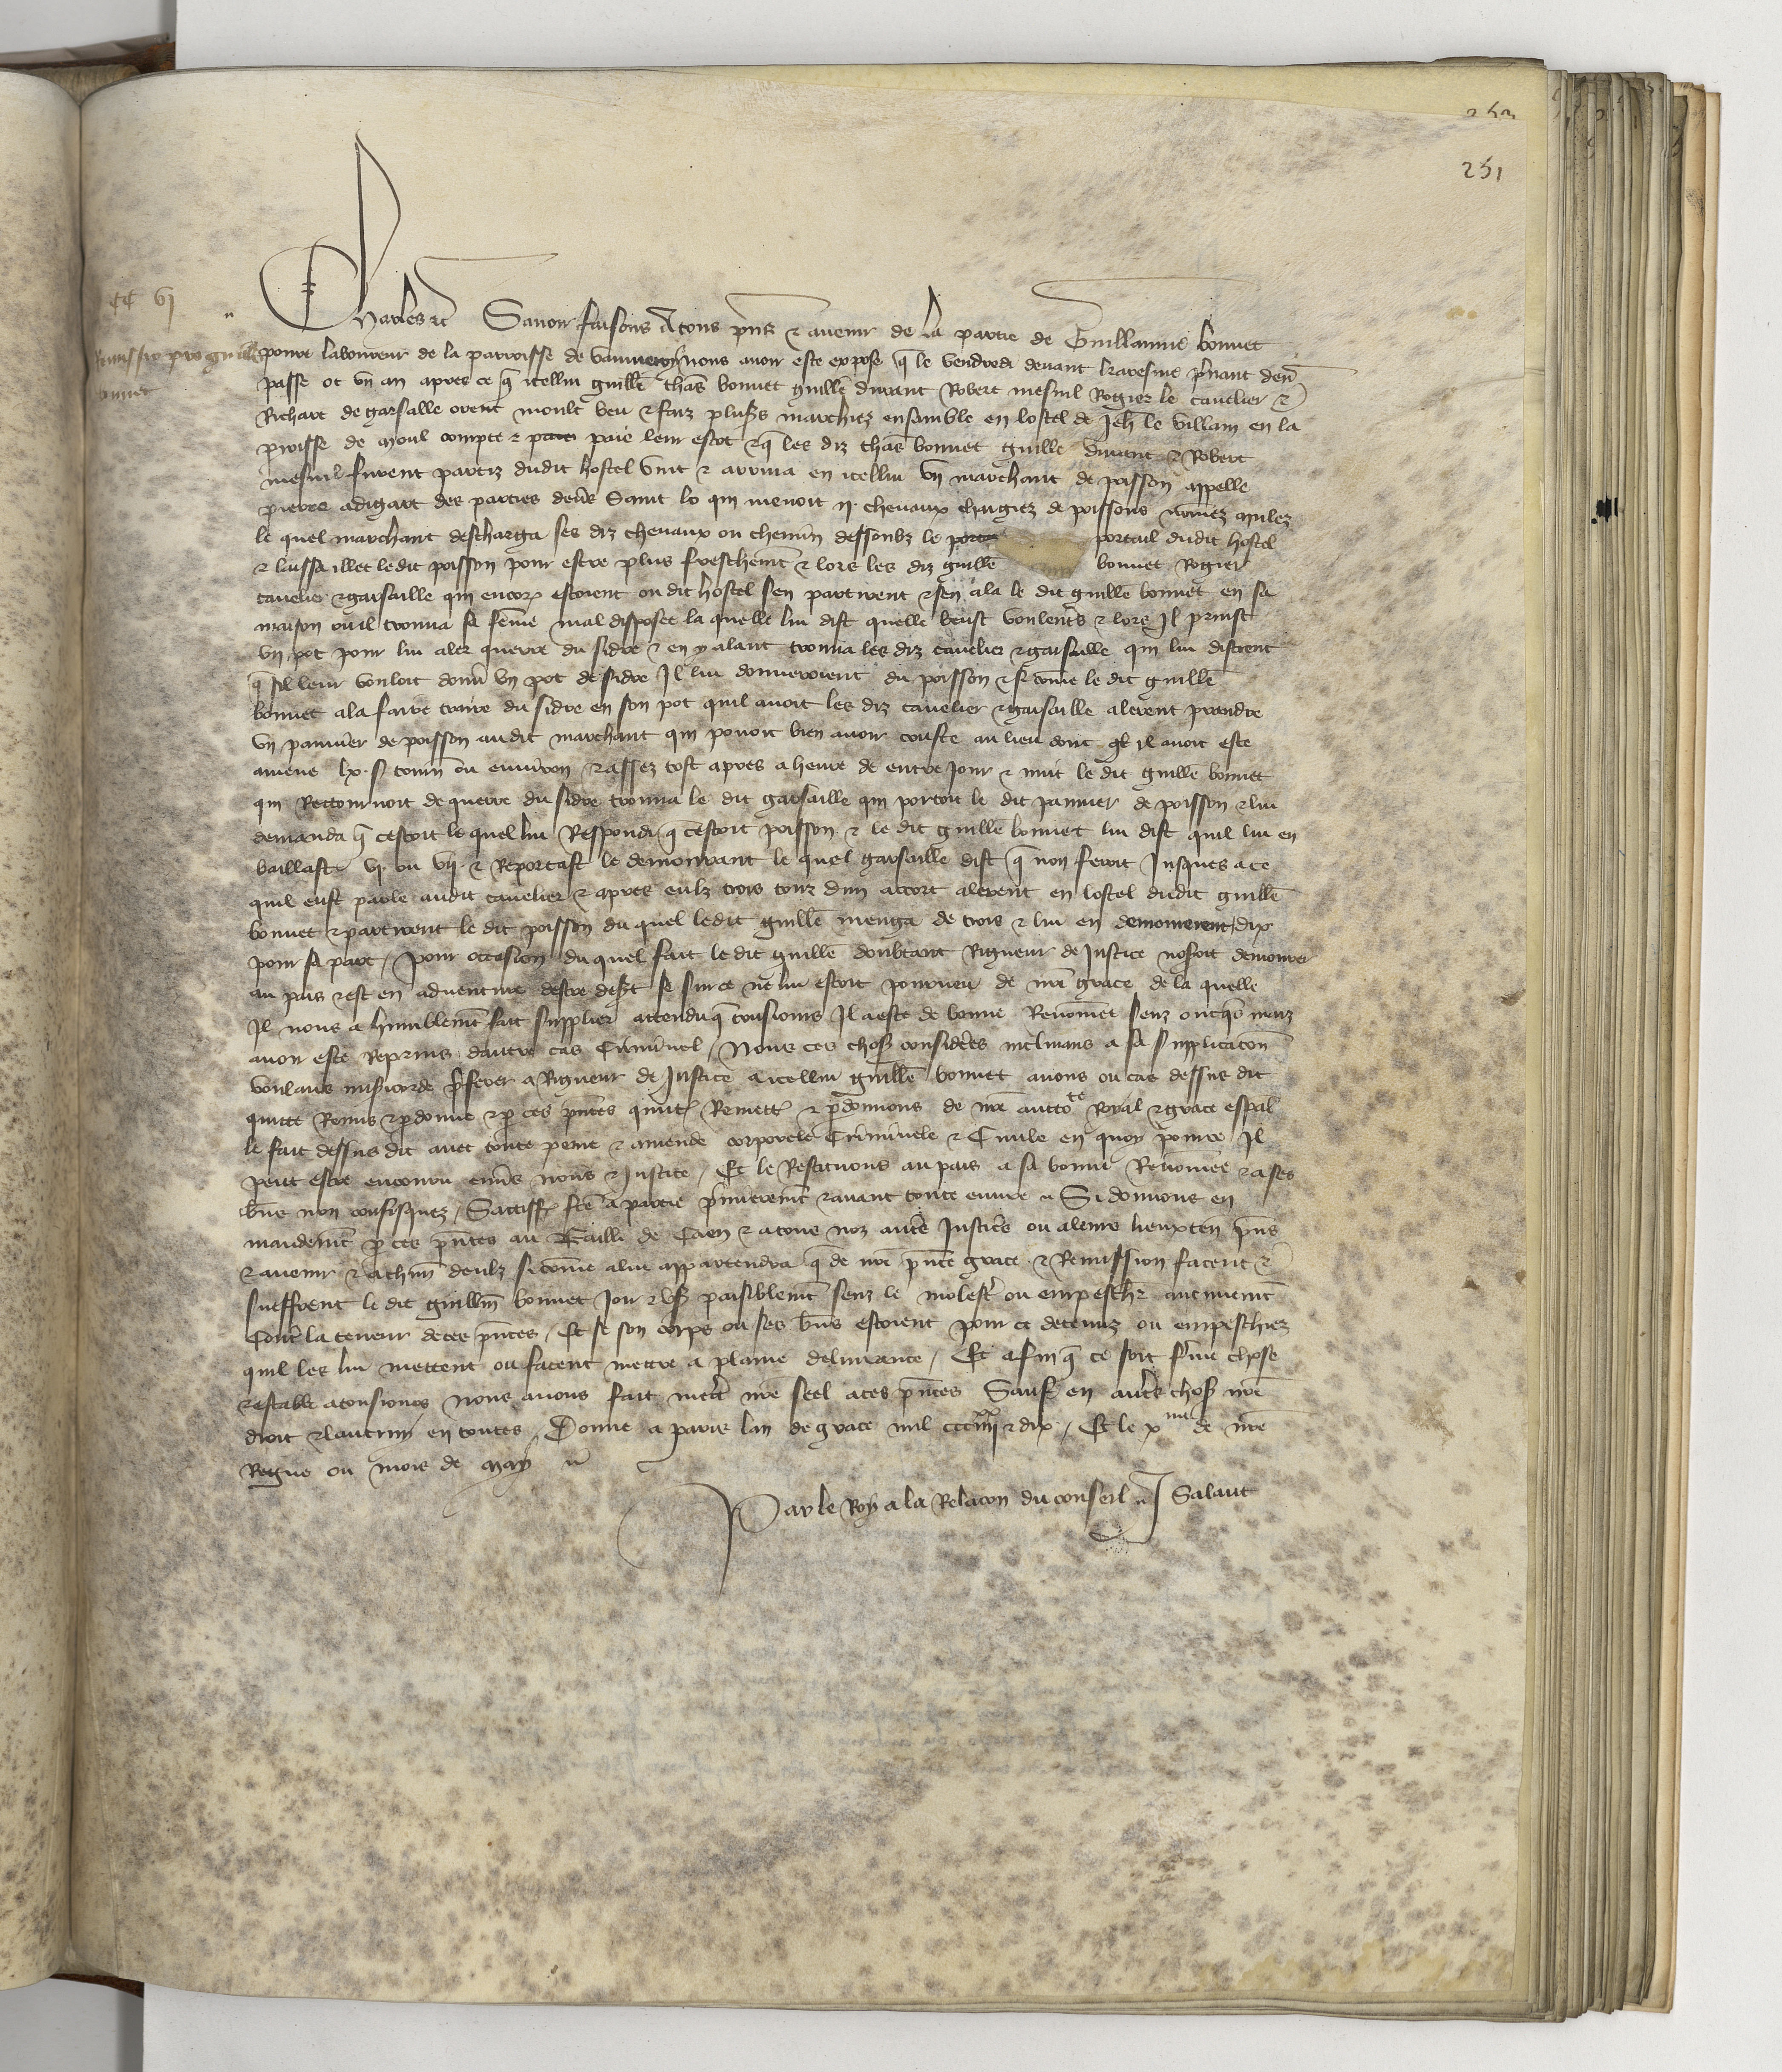 253
251
CC VI
Charles etc Savoir faisons A tous pn̄s & avenir de La partie de Guillaume bonnet
Remissio pro Guillō bonnet
povre laboureur de la parroisse de nous avoir este expose q̄ le vendredi devant karesme pr̄nant derr̄
passe ot un an apres ce q̄ icellui guillē thās bonnet guillē durant Robert mesnil Rogier le cavelier &
Richart de garsalle orent moult beu & faiz plus̄s marchiez ensamble en lostel de Jeh̄ le villain en la
p̄roisse de moul compte & paie leur escot & q̄ les diz thās bonnet guillē durant & Robert
mesnil furent partiz dudit hostel vint & arriva en icellui un marchant de poisson appelle
pierre adigart des parties devs̄ Saint lo qui menoit ij chevaux chargiez de poissons nōmez mulez
le quel marchant descharga ses diz chevaux ou chemin dessoubz le portail dudit hostel
& laissa illec ledit poisson pour estre plus freschemt̄ & lors les diz guillē bonnet Rogier
cavelier & garsaille qui encor estoient ou dit hostel sen partirent & sen ala le dit guillē bonnet en sa
maison ou il trouva sa fēme mal disposee la quelle lui dist quelle beust voulentrs̄ & lors Il prinst
un pot pour lui aler querre du sidre & en y alant trouva les diz cavelier & garsaille qui lui distrent
q̄ sil leur vouloit donn̄ un pot de sidre Il lui donneroient du poisson & si cōme le dit guillē
bonnet ala faire traire du sidre en son pot quil avoit les diz cavelier & garsaille alerent prendre
un pannier de poisson audit marchant qui povoit bien avoir couste au lieu dont il avoit este
amene lx s tourn̄ ou environ & assez tost apres a heure de entre Jour & nuit le dit guillē bonnet
qui Retournoit de querre du sidre trouva le dit garsaille qui portoit le dit pannier de poisson & lui
demanda q̄ cestoit le quel lui Respondi q̄ cestoit poisson & le dit guillē bonnet lui dist quil lui en
baillast vi ou vij & Reportast le demourant le quel garsaille dist q̄ non feroit Jusques a ce
quil eust parle audit cavelier & apres eulz trois touz dun accort alerent en lostel dudit guillē
bonnet & partirent le dit poisson du quel ledit guillē menga de trois & lui en demourerent dix
pour sa part / Pour occasion du quel fait le dit guillē doubtant Rigueur de Justice nosoit demourer
au pais & est en adventure destre desert se sur ce ne lui estoit pourveu de nr̄e grace de la quelle
Il nous a humblemt̄ fait supplier attendu q̄ tousiours Il a este de bonne Renōmee senz onqs̄ maiz
avoir este Reprins dautre cas Criminel / Nous ces chos̄ considers̄ inclinans a sa supplicacon̄
voulans mis̄icorde p̄ferer a Rigueur de Justice a icellui guillē bonnet avons ou cas dessus dit
quitte Remis & p̄donne & p̄ ces pn̄tes quitt̄ Remett̄ & p̄donnons de nr̄e auctote Royal & grace esp̄al
le fait dessus dit avec toute peine & amende corporele Criminele & Civile en quoy pour ce Il
peut estre encouru envs̄ nous & Justice / Et le Restituons au pais a sa bonne Renōmee & a ses
bn̄s non confisquez / Sattiff̄ fc̄e a partie p̄mieremt̄ & avant toute euvre Si donnons en
mandemt̄ p̄ ces pn̄tes au Bailli de Caen & a tous noz autrs̄ Justicrs̄ ou a leurs lieuxten̄ pn̄s
& avenir & a chūn deulz si cōme a lui appartendra q̄ de nr̄e pn̄te grace & Remission facent &
sueffrent le dit guillm̄ bonnet Joir & us̄ paisiblemt̄ senz le molestr̄ ou empeschr̄ aucunemt̄
Contr̄ la teneur de ces pn̄tes / Et se son corps ou ses bn̄s estoient pour ce detenuz ou empeschiez
quil les lui mettent ou facent mettre a plaine delivrance / Et afin q̄ ce soit ferme chose
& estable a tousiours Nous avons fait mettr̄ nr̄e seel a ces pn̄tes Sauf en autrs̄ chos̄ nr̄e
droit & lautruy en toutes / Donne a paris lan de grace mil ccc iiijxx & dix / Et le xme de nr̄e
Regne ou mois de may
Par le Roy a la Relacon du conseil J Salaut